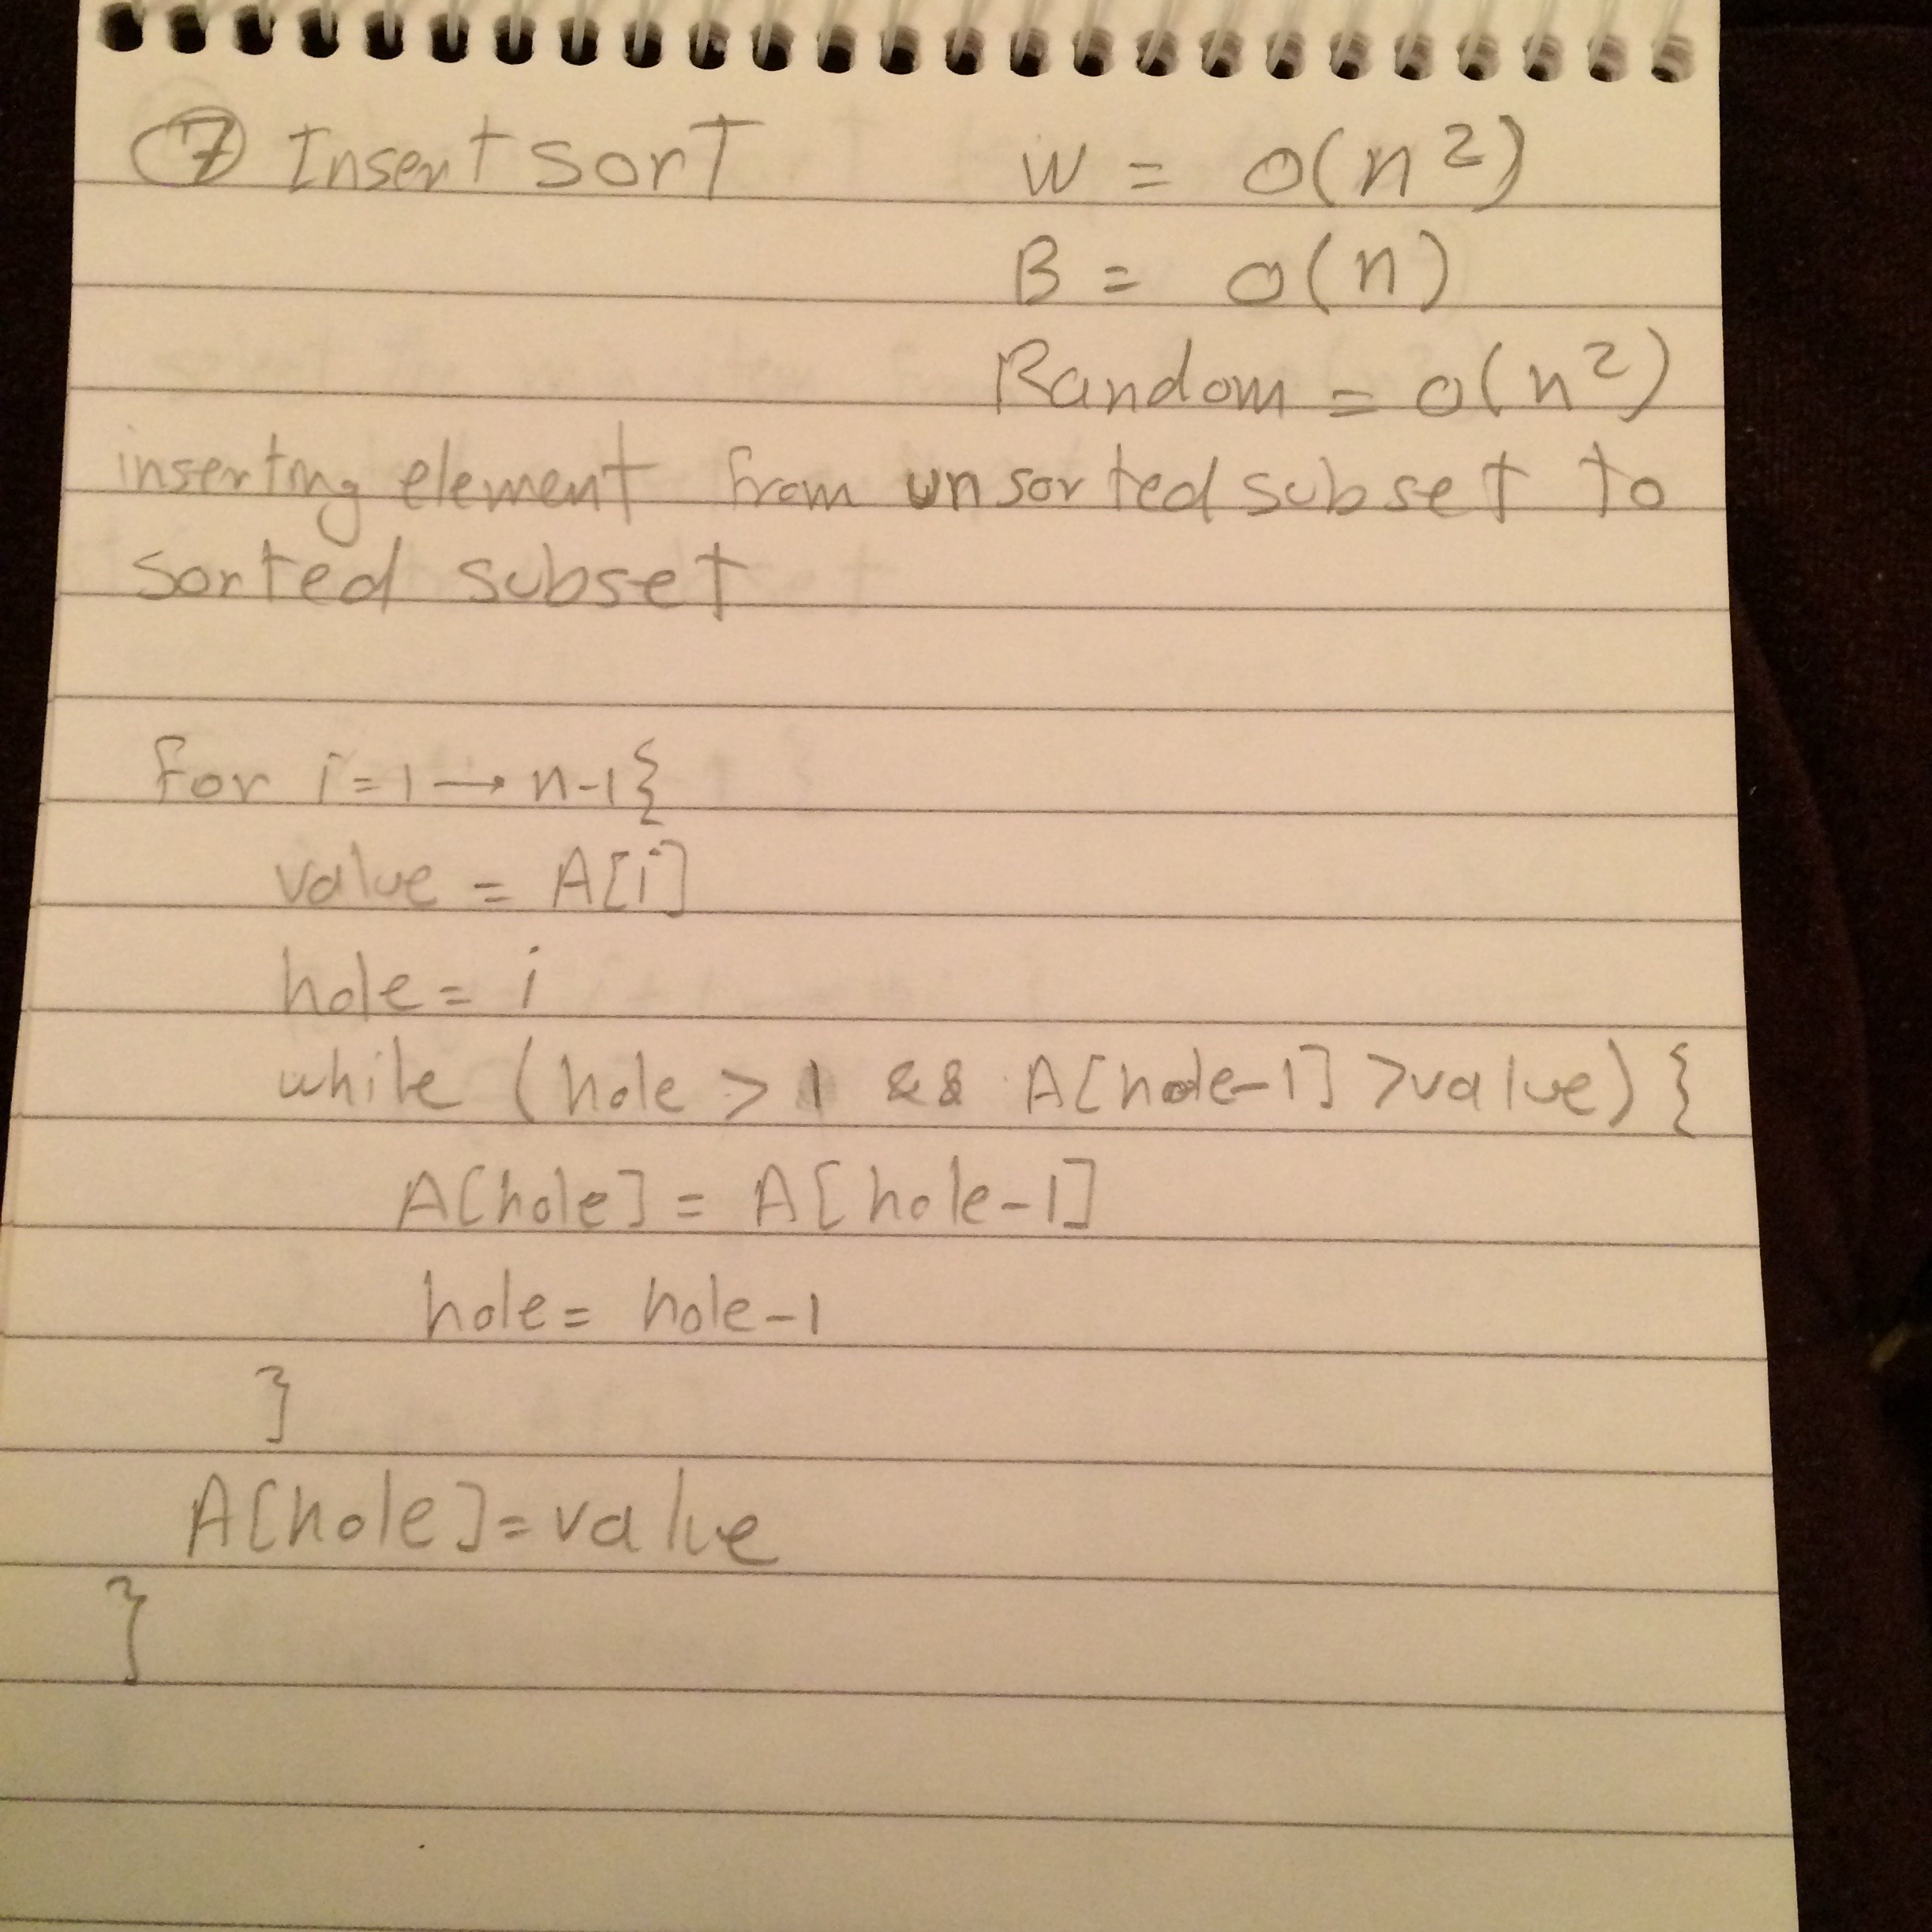 ⑦ Insert sort W = O(n²)
B = O(n)
Random = O(n²)
inserting element from unsorted subset to
sorted subset
For i=1 → n-1{
value = A[i]
hole = i
while (hole > 1 && A[hole-1] >value) {
A[hole] = A[hole-1]
hole = hole-1
}
A[hole]=value
}